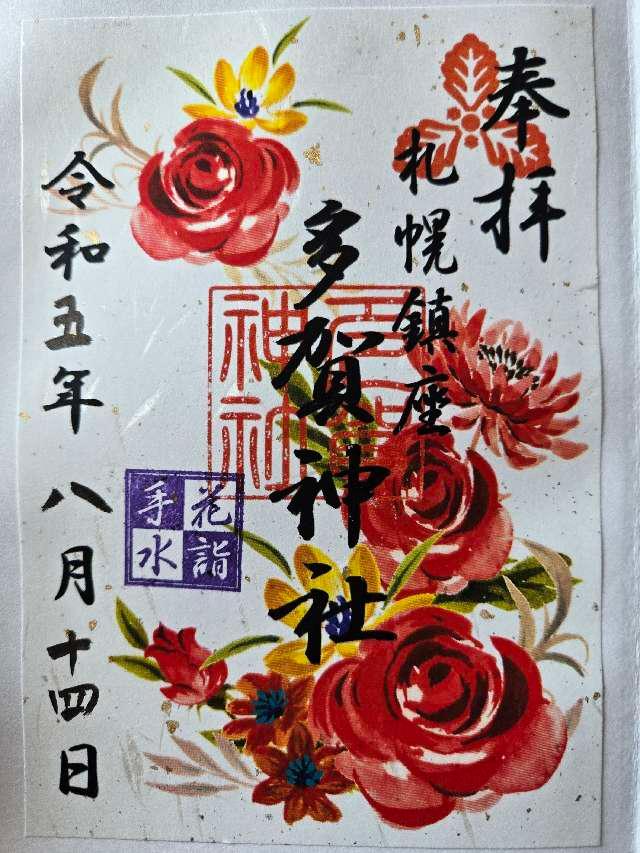 奉拝
札幌鎮座
多賀神社
令和五年八月十四日
花詣
手水